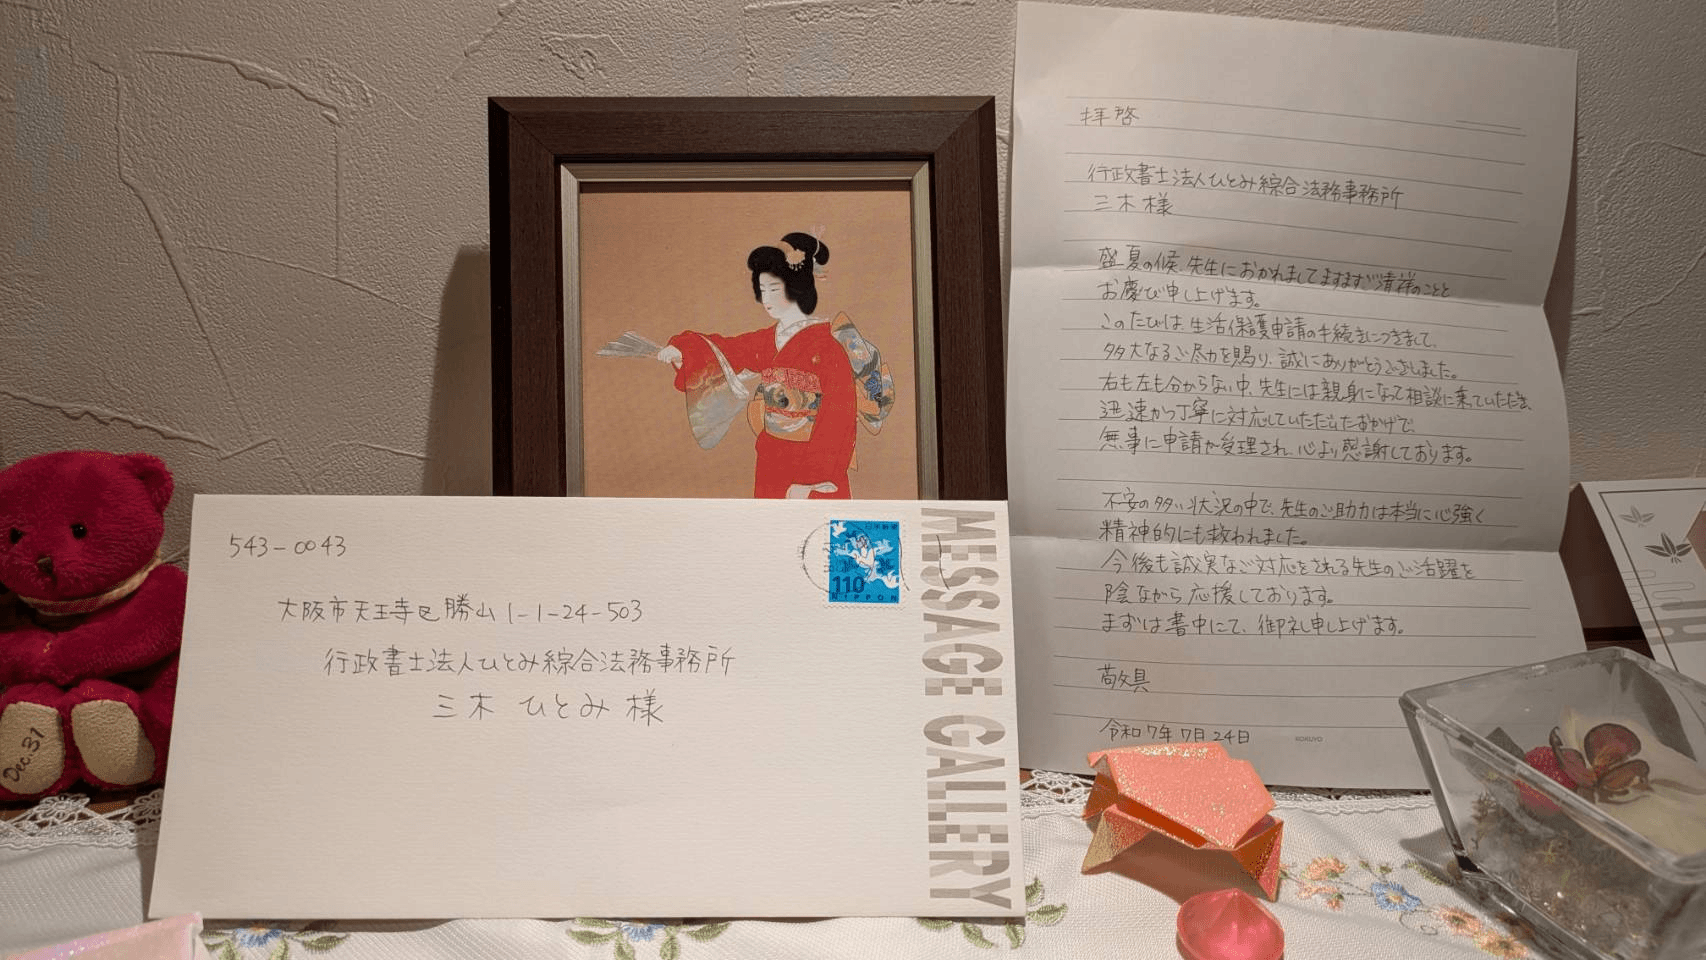 拝啓
行政書士法人ひとみ綜合法務事務所
三木様
盛夏の候、先生におかれましてますますご清祥のことと
お慶び申し上げます。
このたびは、生活保護申請の手続きにつきまして、
多大なるご尽力を賜り、誠にありがとうございました。
右も左も分からない中、先生には親身になって相談に乗っていただき、
迅速かつ丁寧に対応していただいたおかげで、
無事に申請が受理され、心より感謝しております。
不安の多い状況の中で、先生のご助力は本当に心強く
精神的にも救われました。
今後も誠実なご対応をされる先生のご活躍を
陰ながら応援しております。
まずは書中にて、御礼申し上げます。
敬具
令和7年7月24日
KOKUYO
543-0043
大阪市天王寺区勝山1-1-24-503
行政書士法人ひとみ綜合法務事務所
三木 ひとみ 様
日本郵便
110
NIPPON
MESSAGE GALLERY
Dec.31